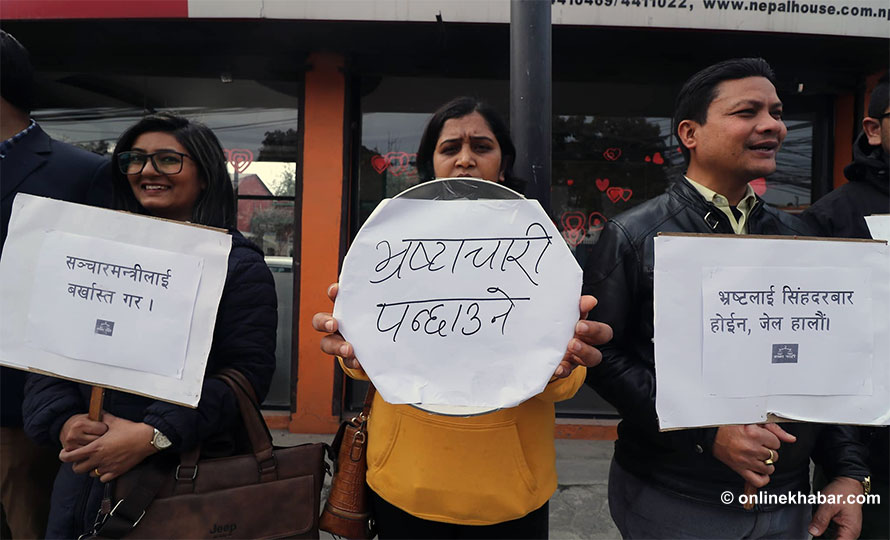 4410489/4411022, www.nepalhouse.com.np
सञ्चारमन्त्रीलाई
बर्खास्त गर ।
भ्रष्टाचारी
पन्छाउने
भ्रष्टलाई सिंहदरबार
होईन, जेल हालौं।
Jeep
© onlinekhabar.com